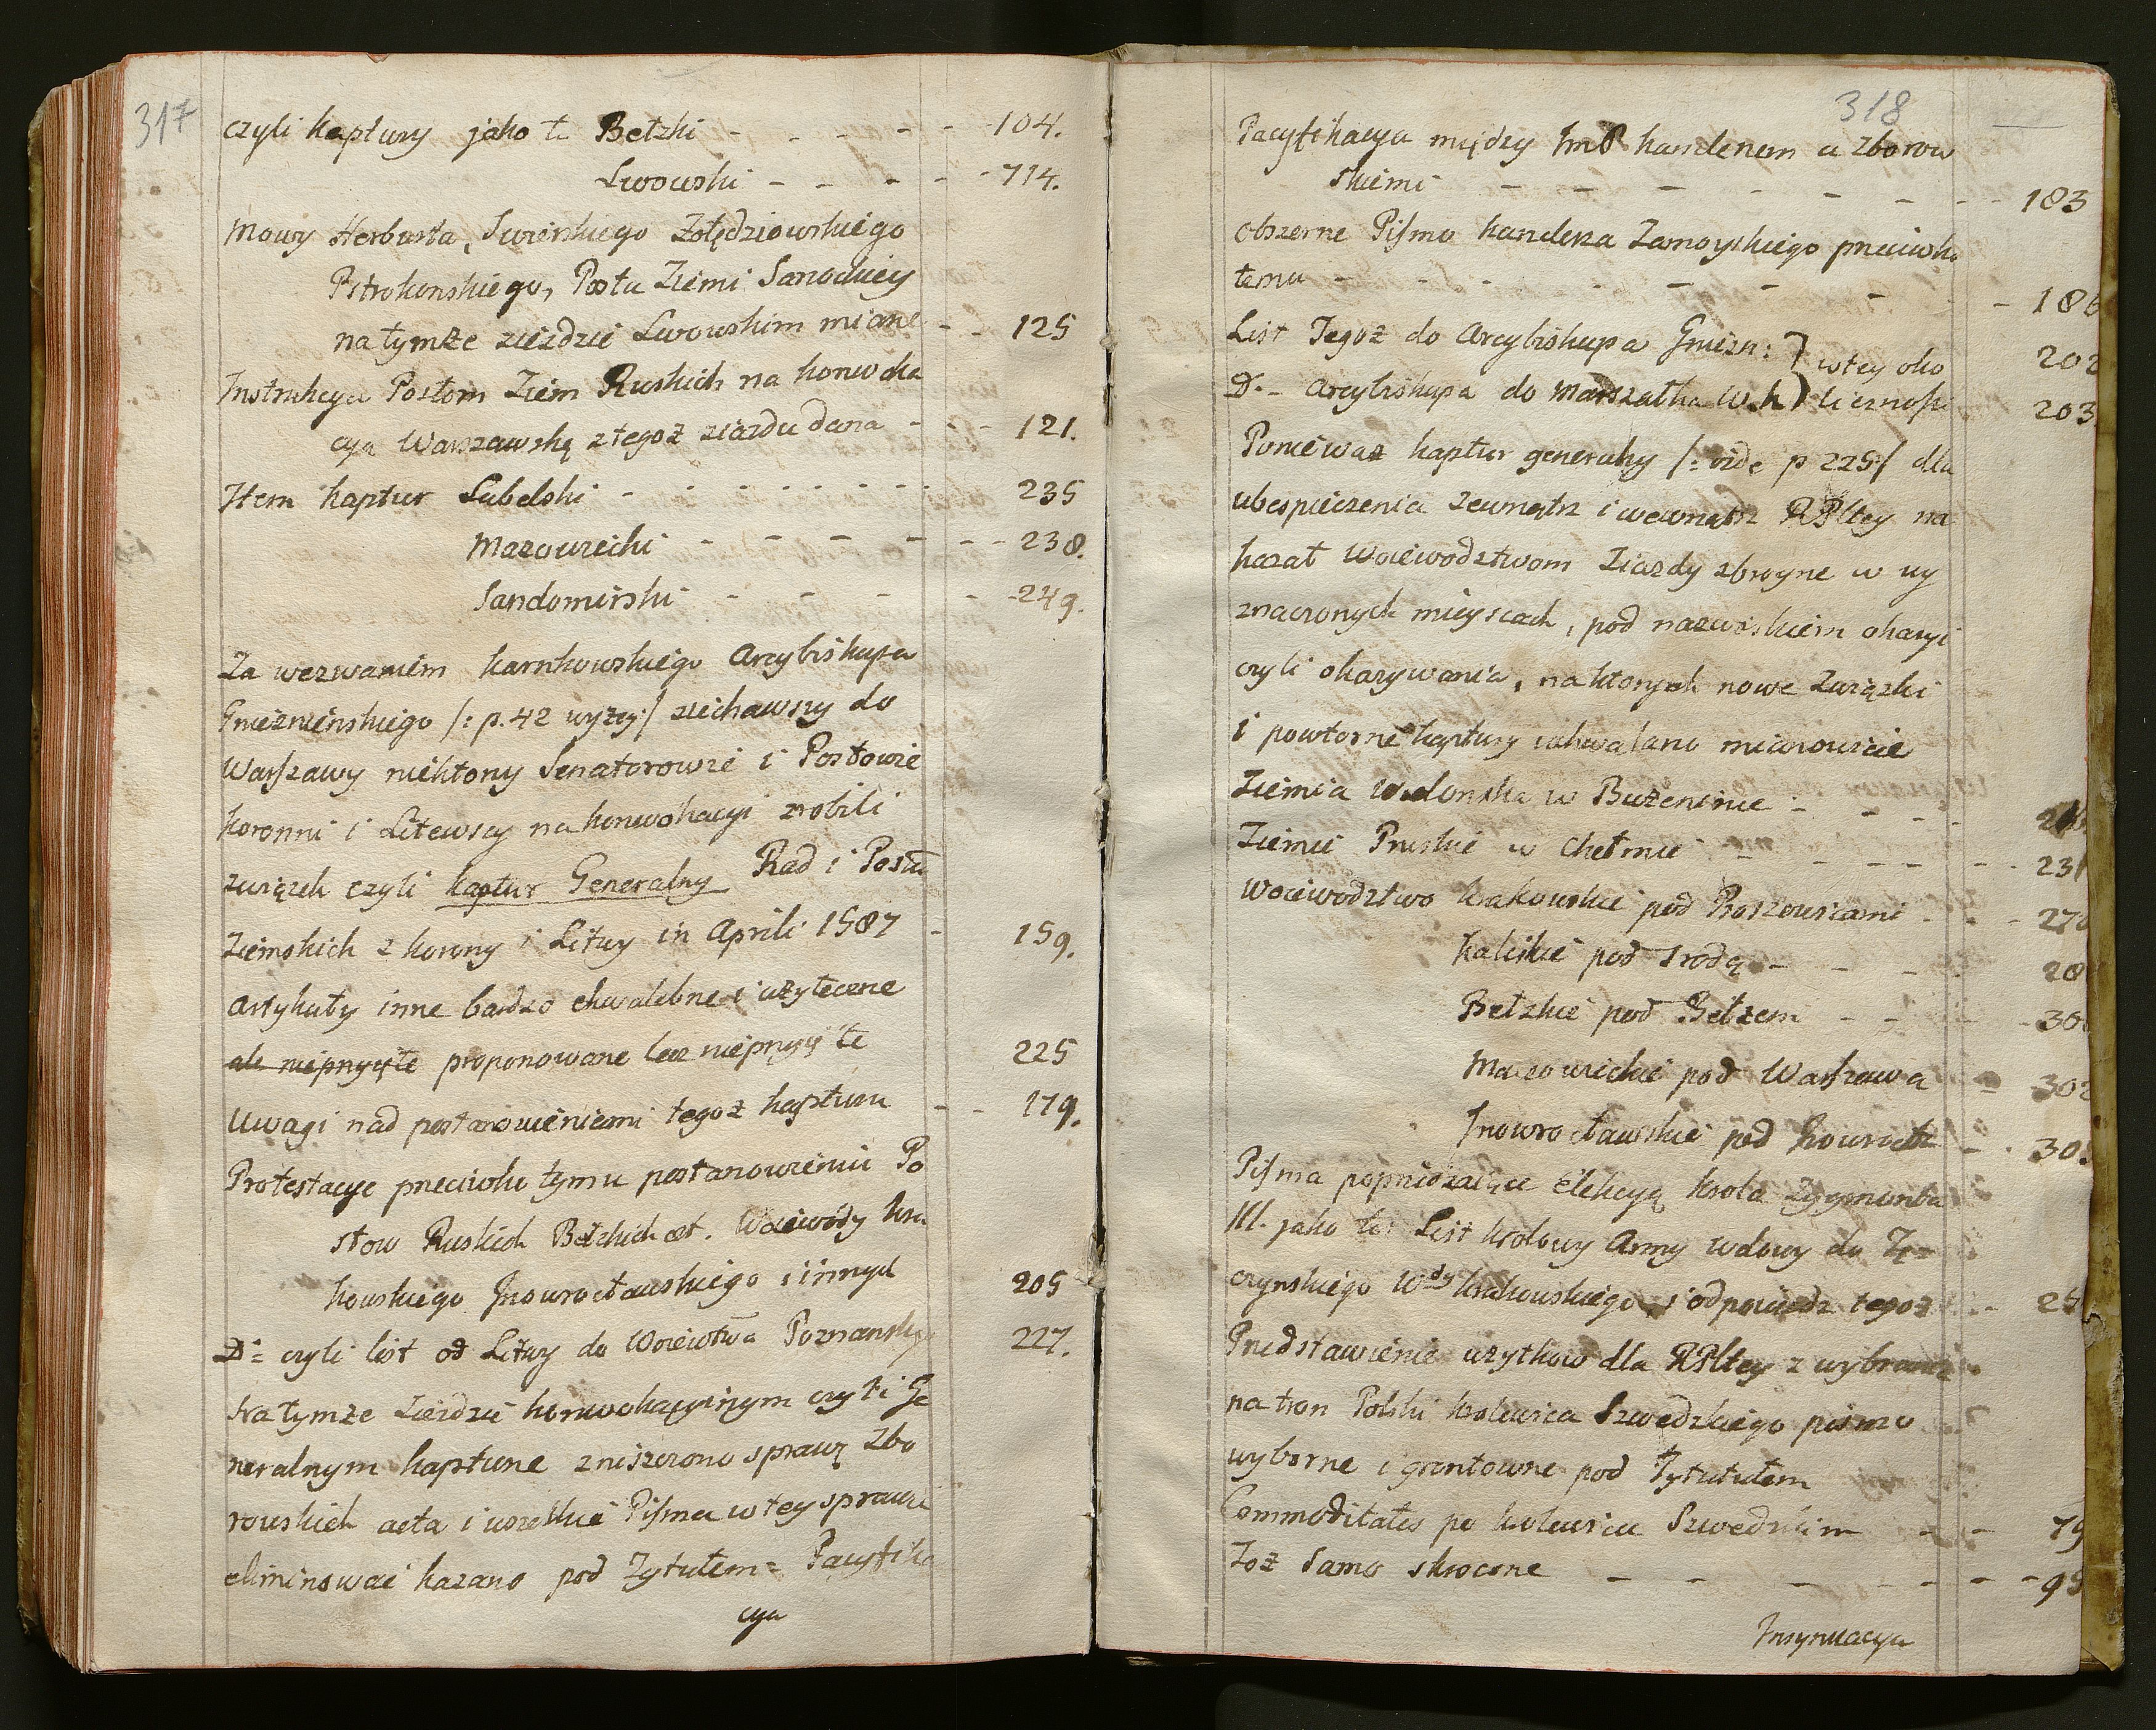 317
czyli kaptury jako to Bełzki - - - - - - 104.
Lwowski - - - - - 114.
Mowy Herburta, Swierskiego Zołędziowskiego
Pstrokonskiego, Posła Ziemi Sanockiey
na tymże zieździe Lwowskim miane - - 125
Instrukcya Posłom Ziem Ruskich na konwoka
cyą Warszawską z tegoż ziazdu dana - - - 121.
Item kaptur Lubelski - - - - - - - - 235
Mazowiecki - - - - - - 238.
Sandomirski - - - - - - 249.
Za wezwaniem Karnkowskiego Arcybiskupa
Gnieznienskiego /: p. 42 wyżey :/ ziechawszy do
Warszawy niektorzy Senatorowie i Posłowie
koronni i Litewscy na konwokacyi zrobili
związek czyli kaptur Generalny Rad i Posłów
Ziemskich z korony i Litwy in Aprili 1587 - 159.
Artykuły inne bardzo chwalebne i użyteczne
ale nieprzyięte proponowane lecz nieprzyięte 225
Uwagi nad postanowieniami tegoż kapturu - - 179.
Protestacye przeciwko temu postanowieniu Po
słow Ruskich Bełzkich et. Woiewody kra
kowskiego Inowrocławskiego i innych 205
Do = czyli list od Litwy do Woiewtwa Poznanskiego 227.
Na tymże Zieździe konwokacyinym czyli Ge
neralnym kapturze zniszczono sprawę Zbo
rowskich acta i wszelkie Pisma w tey sprawie
eliminować kazano pod Tytułem = Pacyfika
cya
318
Pacyfikacya między ImP kanclerzem a Zborow
skiemi - - - - - - - - 183
obszerne Pismo kanclerza Zamoyskiego przeciwko
temu - - - - - - - - 186
List Tegoż do Arcybiskupa Gniezn: } w tey oko 202
Do - Arcybiskupa do Marszałka W.k } licznosci 203
Ponieważ kaptur generalny /: vide p 225 :/ dla
ubespieczenia zewnątrz i wewnątrz RPltey na
kazał Woiewodztwom Ziazdy zbroyne w wy
znaczonych mieyscach, pod nazwiskiem okazyi
czyli okazywania, na ktorych nowe Związki
i powtorne kaptury uchwalano mianowicie
Ziemia Wielonska w Bużeninie - - - -
Ziemie Pruskie w Chełmie - - - - - - 231
Woiewodztwo krakowskie pod Proszowicami - - - 270
kaliskie pod Srodą - - - - 28
Bełzkie pod Bełzem - - - - 30
Mazowieckie pod Warszawa - 302
Inowrocławskie pod Inowrocła - - 30
Pisma poprzedzaiące Elekcyą krola Zygmunta
III. jako to List krolowy Anny wdowy do Tę-
czynskiego Wdy krakowskiego, i odpowiedz tegoż - - 25
Przedstawienie użytkow dla RPltey z wybrania
na tron Polski krolewica Szwedzkiego pismo
wyborne i gruntowne pod Tytutułem
Commoditates po krolewicu Szwedzkim - - 79
Toż Samo skrocone - - - - - - - 95
Insynuacya